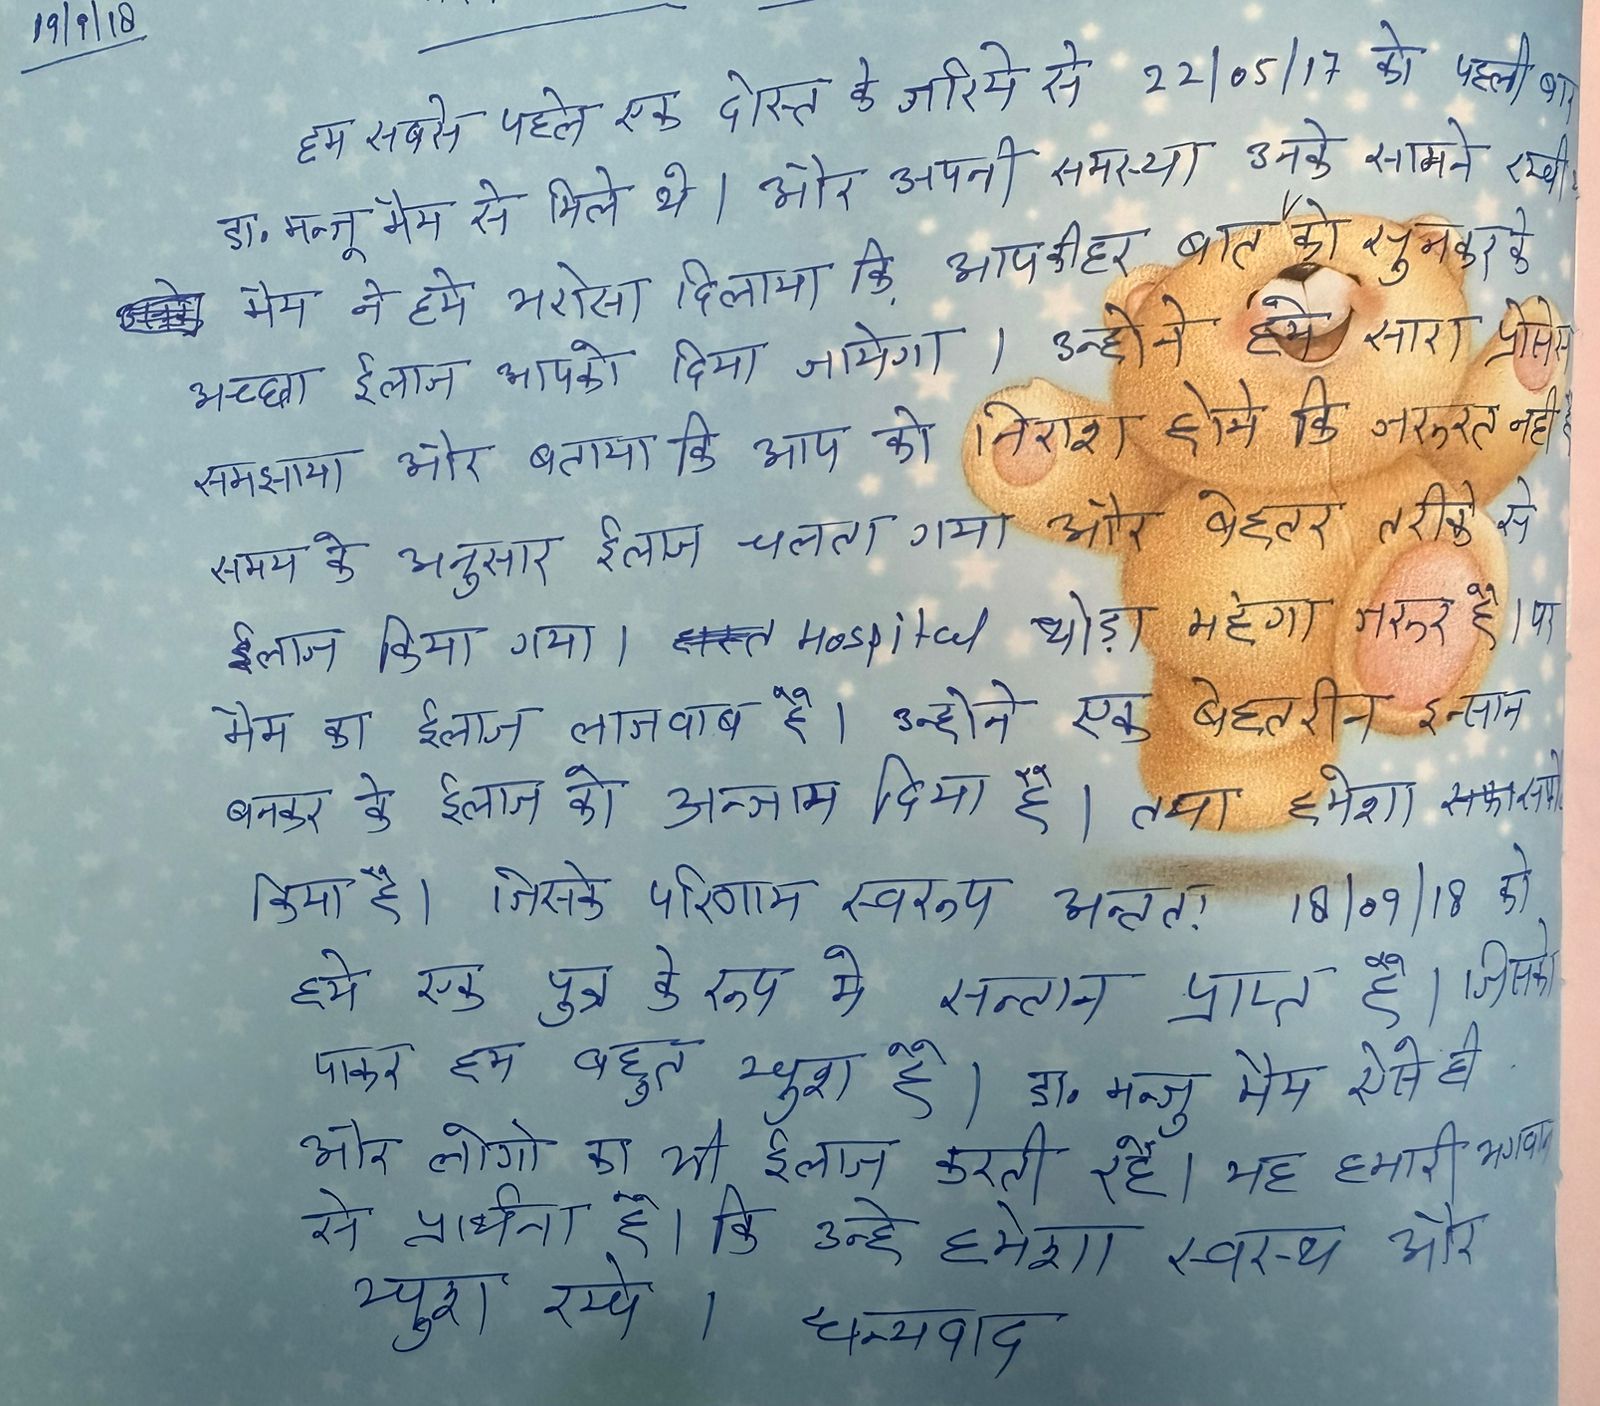 19/9/18
हम सबसे पहले एक दोस्त के जरिये से 22/05/17 को पहली बार
डा. मन्जू मैम से मिले थे। और अपनी समस्या उनके सामने रखी
मैम ने हमे भरोसा दिलाया कि आपकी हर बात को सुनकर के
अच्छा ईलाज आपको दिया जायेगा। उन्होने हमे सारा प्रोसेस
समझाया और बताया कि आप को निराश होने कि जरूरत नही है
समय के अनुसार ईलाज चलता गया और बेहतर तरीके से
ईलाज किया गया। Hospital थोड़ा महंगा जरूर है। पर
मैम का ईलाज लाजवाब है। उन्होने एक बेहतरीन इन्सान
बनकर के ईलाज को अन्जाम दिया है। तथा हमेशा
किया है। जिसके परिणाम स्वरूप अन्तत: 18/09/18 को
हमे एक पुत्र के रूप मे सन्तान प्राप्त है। जिसको
पाकर हम बहुत खुश है। डा. मन्जु मैम ऐसे ही
और लोगो का भी ईलाज करती रहें। यह हमारी भगवान
से प्रार्थना है। कि उन्हे हमेशा स्वस्थ और
खुश रखे। धन्यवाद